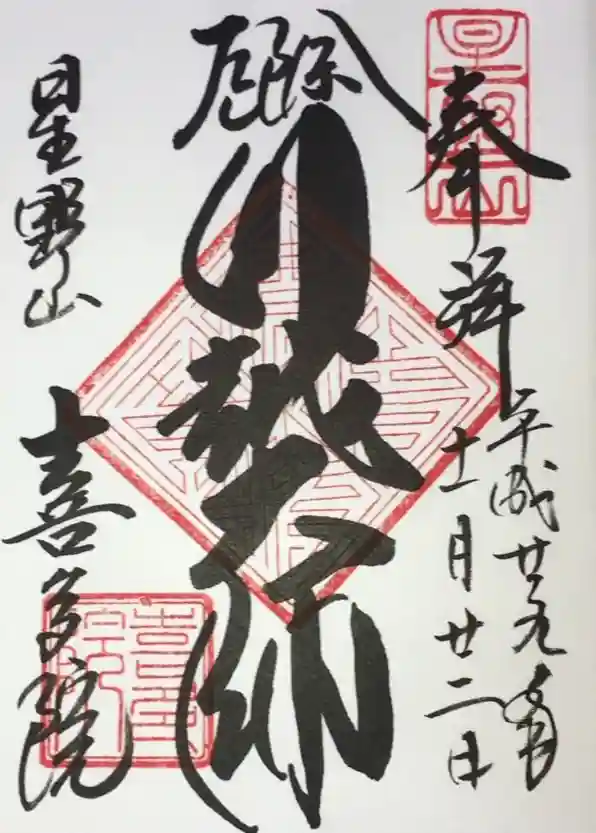 奉拝
平成廿九年
十一月廿二日
厄除
川越大師
星野山
喜多院
喜多院